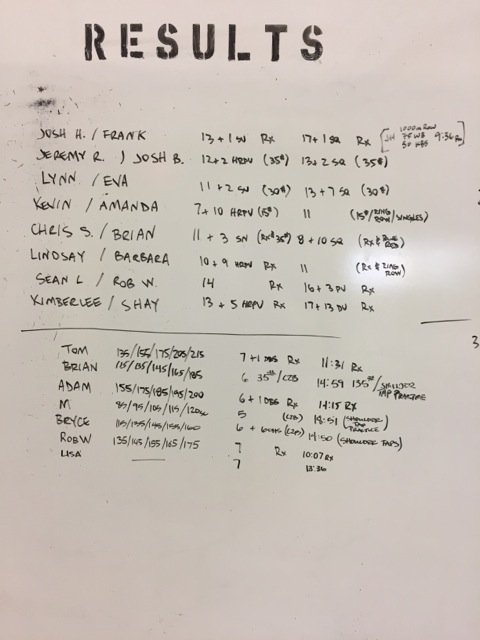 RESULTS
JOSH H. / FRANK 13 + 1 SN Rx 17 + 1 SQ Rx [JH 1000m ROW 75 WB 50 KBS 9:36 Rx]
JEREMY R. / JOSH B. 12 + 2 HRPU (35#) 13 + 2 SQ (35#)
LYNN / EVA 11 + 2 SN (30#) 13 + 7 SQ (30#)
KEVIN / AMANDA 7 + 10 HRPU (15#) 11 (15#/RING ROW/SINGLES)
CHRIS S. / BRIAN 11 + 3 SN (Rx & 35#) 8 + 10 SQ (Rx & BLUE)
LINDSAY / BARBARA 10 + 9 HRPU Rx 11 (Rx & RING ROW)
SEAN L / ROB W. 14 Rx 16 + 3 PU Rx
KIMBERLEE / SHAY 13 + 5 HRPU Rx 17 + 13 DU Rx
3
TOM 135/155/175/205/215 7 + 1 DBS Rx 11:31 Rx
BRIAN 115/135/145/165/185 6 35#/ 14:59 135#/SHOULDER TAP PRACTICE
ADAM 155/175/185/195/200 6 + 1 DBS Rx 14:15 Rx
M 85/95/105/115/120 5 14:51 (SHOULDER TAP PRACTICE)
BRYCE 115/135/145/155/160 6 + 14:50 (SHOULDER TAPS)
ROB W 135/145/155/165/175 7 Rx 10:07 Rx
LISA 7 13:36